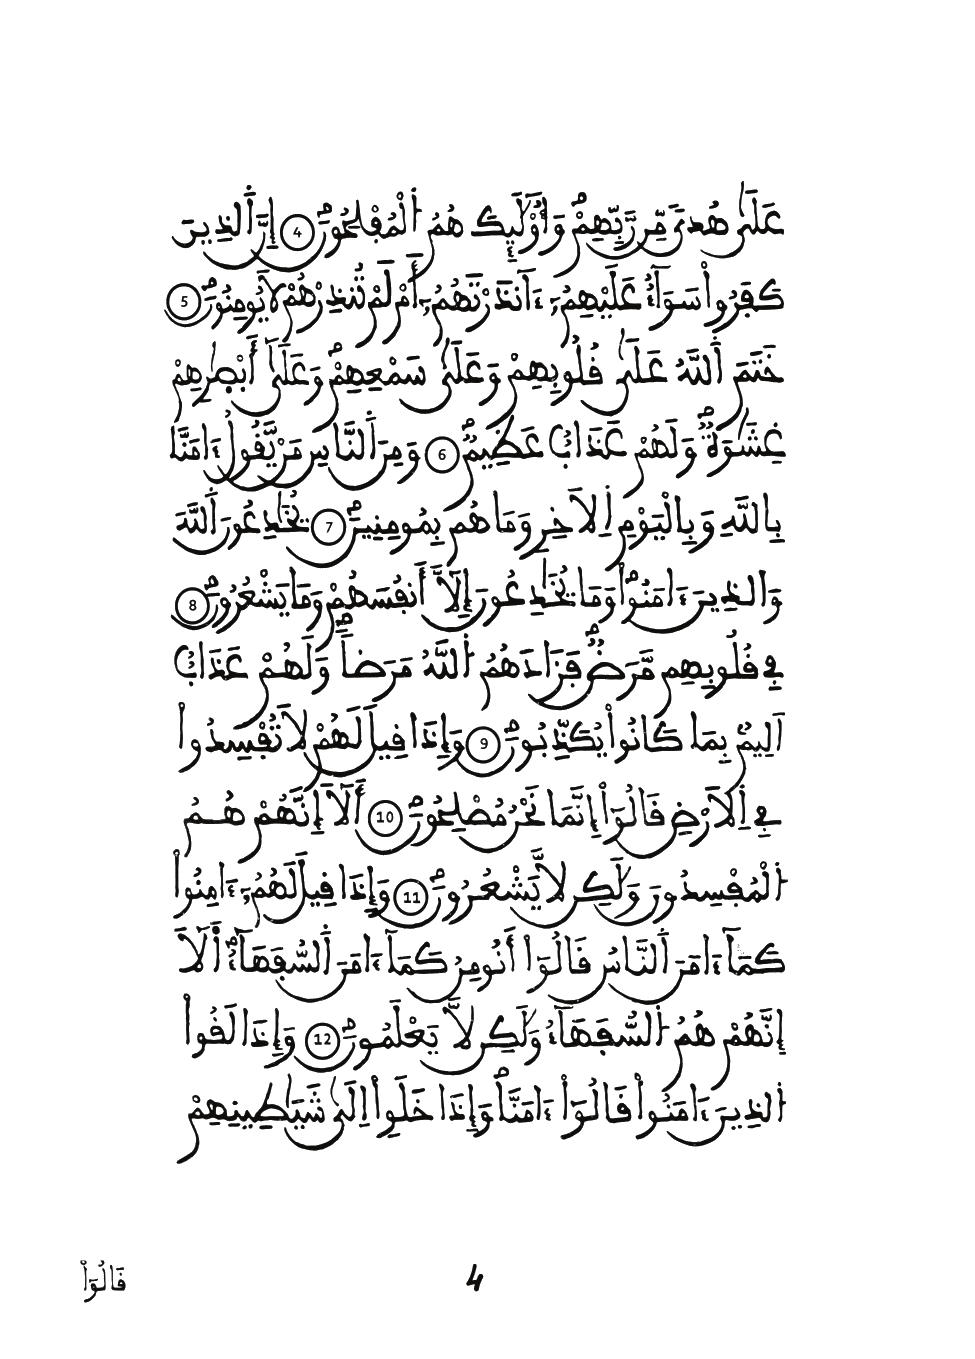 عَلَىٰ هُدىٗ مِّن رَّبِّهِمْۖ وَأُوْلَٰٓئِكَ هُمُ اُ۬لْمُفْلِحُونَۖ 4 إِنَّ اَ۬لذِينَ
كَفَرُواْ سَوَآءٌ عَلَيْهِمُۥٓ ءَآنذَرْتَهُمُۥٓ أَمْ لَمْ تُنذِرْهُمْ لَا يُومِنُونَۖ 5
خَتَمَ اَ۬للَّهُ عَلَىٰ قُلُوبِهِمْ وَعَلَىٰ سَمْعِهِمْۖ وَعَلَىٰٓ أَبْصٰ۪رِهِمْ
غِشَٰوَةٞۖ وَلَهُمْ عَذَابٌ عَظِيمٞۖ 6 وَمِنَ اَ۬لنَّاسِ مَنْ يَّقُولُ ءَامَنَّا
بِاللَّهِ وَبِالْيَوْمِ اِ۬لَاخِرِ وَمَا هُم بِمُومِنِينَۖ 7 يُخَٰدِعُونَ اَ۬للَّهَ
وَالذِينَ ءَامَنُواْۖ وَمَا يُخَٰدِعُونَ إِلَّآ أَنفُسَهُمْۖ وَمَا يَشْعُرُونَۖ 8
فِے قُلُوبِهِم مَّرَضٞۖ فَزَادَهُمُ اُ۬للَّهُ مَرَضاٗۖ وَلَهُمْ عَذَابٌ
اَلِيمُۢ بِمَا كَانُواْ يُكَذِّبُونَۖ 9 وَإِذَا قِيلَ لَهُمْ لَا تُفْسِدُواْ
فِے اِ۬لَارْضِ قَالُوٓاْ إِنَّمَا نَحْنُ مُصْلِحُونَۖ 10 أَلَآ إِنَّهُمْ هُمُ
اُ۬لْمُفْسِدُونَ وَلَٰكِن لَّا يَشْعُرُونَۖ 11 وَإِذَا قِيلَ لَهُمُۥٓ ءَامِنُواْ
كَمَآ ءَامَنَ اَ۬لنَّاسُ قَالُوٓاْ أَنُومِنُ كَمَآ ءَامَنَ اَ۬لسُّفَهَآءُۖ اَ۬لَآ
إِنَّهُمْ هُمُ اُ۬لسُّفَهَآءُ وَلَٰكِن لَّا يَعْلَمُونَۖ 12 وَإِذَا لَقُواْ
اُ۬لذِينَ ءَامَنُواْ قَالُوٓاْ ءَامَنَّاۖ وَإِذَا خَلَوِاْ اِلَىٰ شَيَٰطِينِهِمْ
قَالُوٓاْ
4